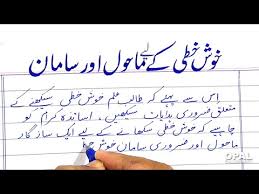 خوش خطی کے لیے ماحول اور سامان
اس سے پہلے کہ طالب علم خوش خطی سیکھنے کے
متعلق ضروری ہدایات سیکھیں، اساتذہ کرام کو
چاہیے کہ خوش خطی سکھانے کے لیے ایک ساز گار
ماحول اور ضروری سامان خوش خطی
OPAL